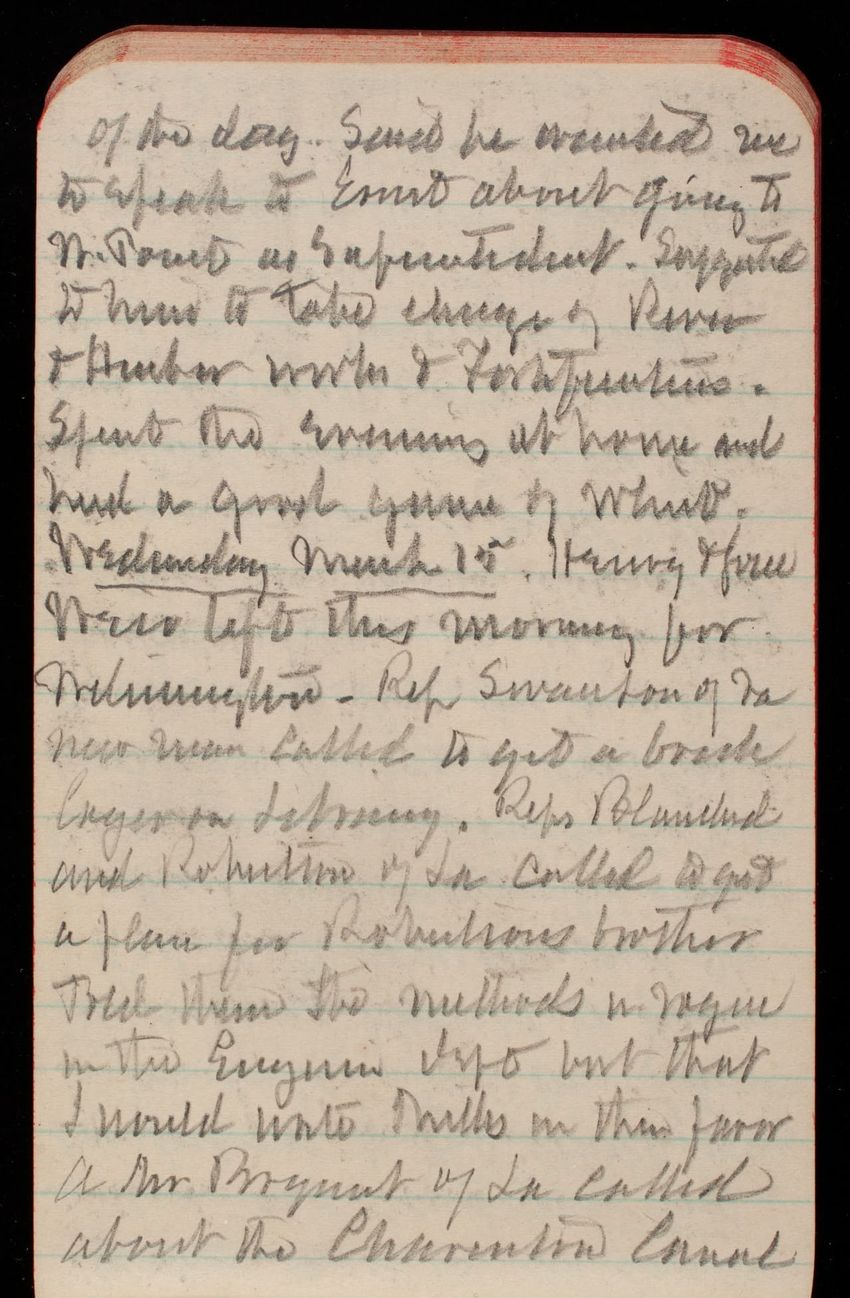 of the day. Said he wanted me
to speak to Ernst about going to
W. Point as Superintedent. Suggested
to him to take charge of River
& Harbor works & Fortifications.
Spent the evening at home and
had a good game of Whist.
Wednesday March 15. Henry &
Weir left this morning for
Wilmington - Rep Swanson of Va
new man called to get a
on. Reps Blanchard
and Robertson of La called to get
a place for Robertsons brother
Told them the methods in vogue
in the Engineer Dept but that
I would write Mills in their favor
A Mr Bryant of La called
about the Charenton Canal